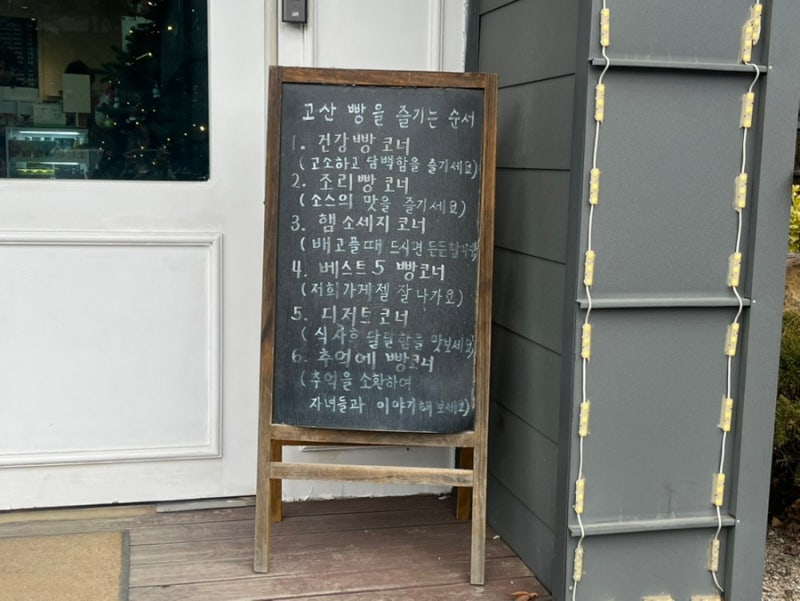 고산 빵을 즐기는 순서
1. 건강빵 코너
(고소하고 담백함을 즐기세요)
2. 조리빵 코너
(소스의 맛을 즐기세요)
3. 햄 소세지 코너
(배고플때 드시면 든든합니다)
4. 베스트 5 빵코너
(저희가게 젤 잘 나가요)
5. 디저트코너
(식사후 달달함을 맛보세요)
6. 추억에 빵코너
(추억을 소환하여
자녀들과 이야기해보세요)